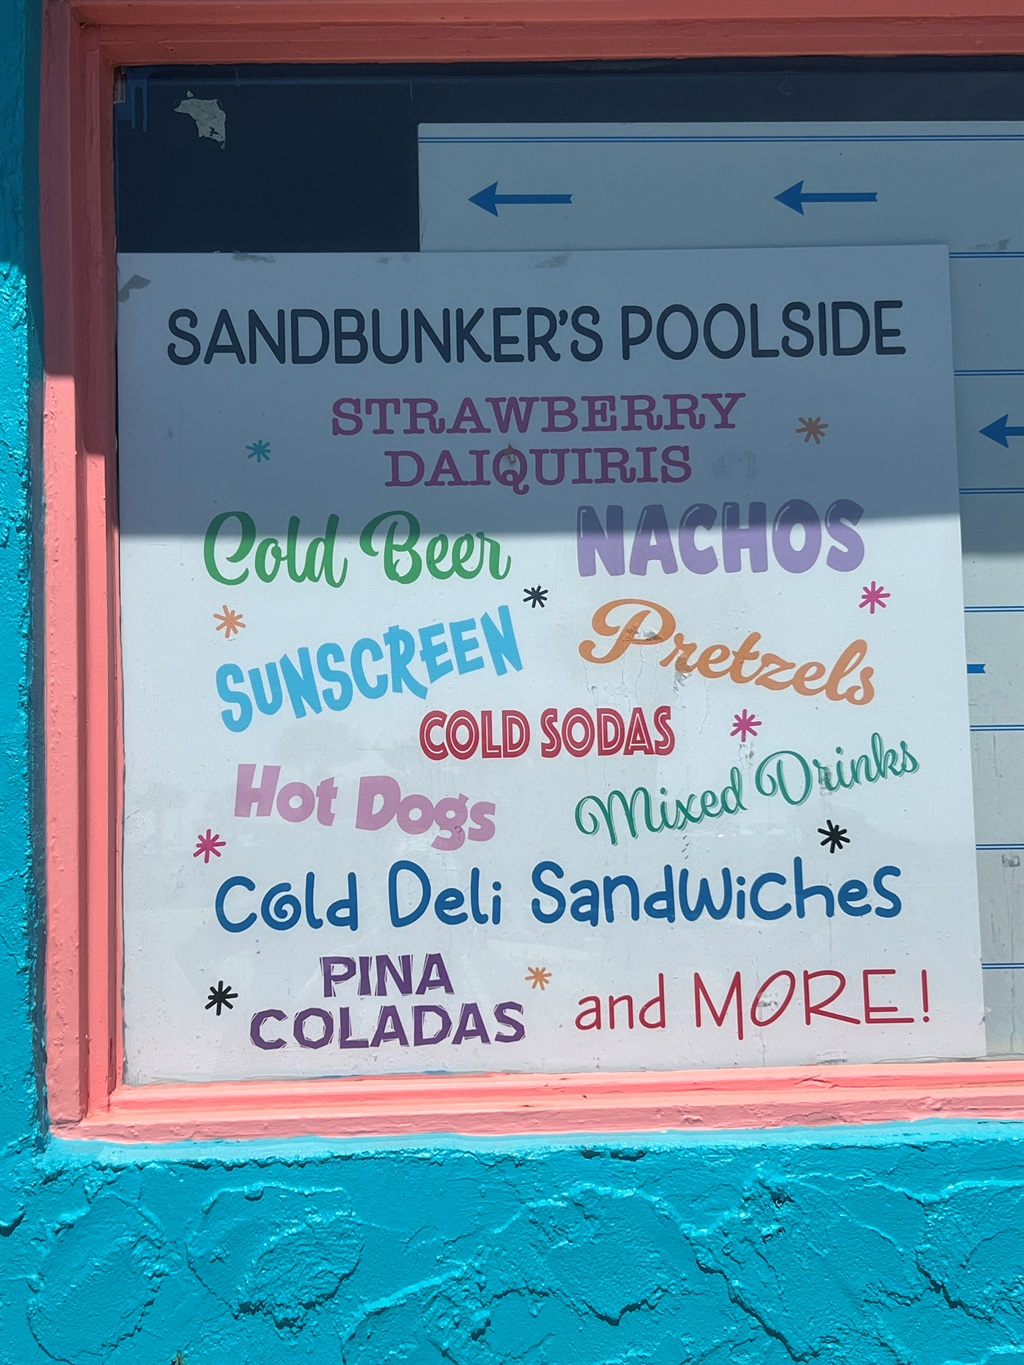 SANDBUNKER'S POOLSIDE
STRAWBERRY
DAIQUIRIS
Cold Beer
NACHOS
SUNSCREEN
Pretzels
COLD SODAS
Hot Dogs
Mixed Drinks
Cold Deli Sandwiches
PINA
COLADAS
and MORE!